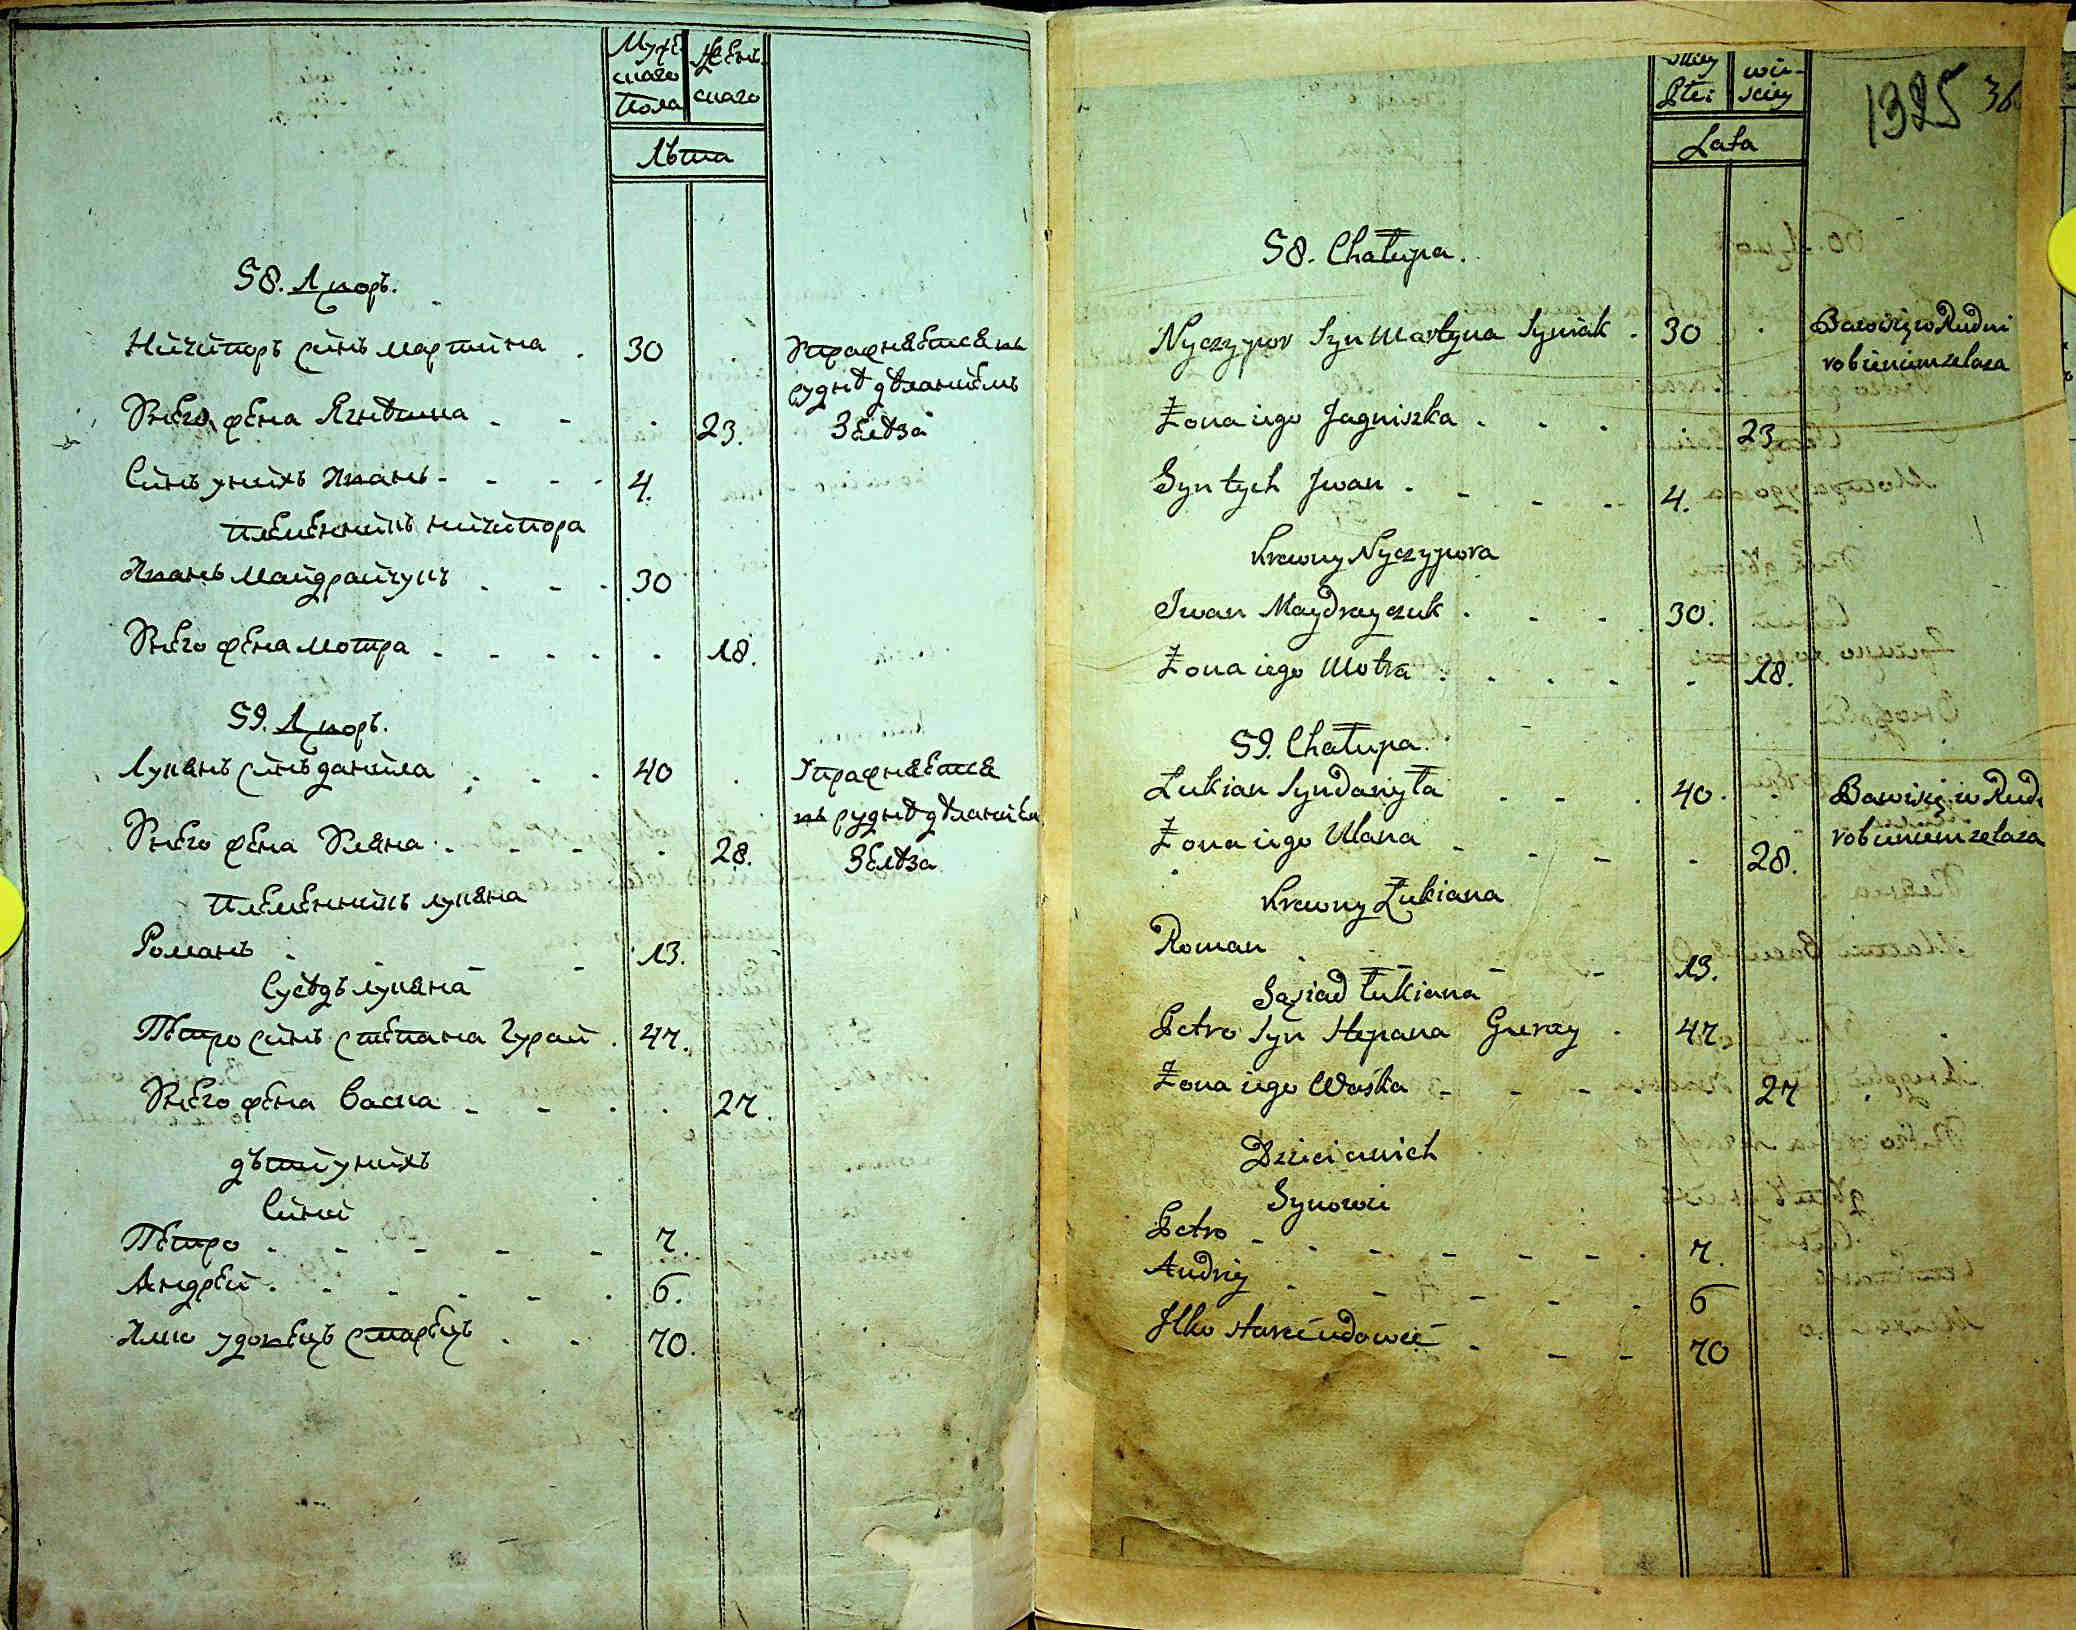 Муже Жен
скаго скаго
Пола
Лѣта
58. Дворъ.
Ничипоръ синъ мартина . 30 . Упражняется въ
рудне деланиемъ
Внего жена Ягнешка - - . 23. Зелеза
Синъ унихъ Иванъ - - - . 4.
племенникъ ничипора
Иванъ Майдрайчукъ . - . 30
Внего жена мотра - - - - . 18.
59. Дворъ.
Лукянъ синъ данила . . . 40 . Упражняется
въ рудне делание
Внего жена Уляна - - - . 28. Зелеза
племенникъ лукяна
Романъ . - - 13.
Суседъ лукяна
Петро синъ степана Гурай . 47.
Внего жена Васка - - . . 27.
дѣти унихъ
Сини
Петро - - - - - 7.
Андрей . - - - - . 6.
Илко удовецъ старецъ . - 70.
skiey wie-
Płei skiey
Lata
1325 36
58. Chałupa.
Nyczypor Syn Martyna Syniak . 30 . Bawi się w Rudni
robieniem zelaza
Żona iego Jagniszka . - . . 23
Syn tych Jwan . - - - 4.
krewny Nyczypora
Iwan Maydrayczuk . - . 30.
Żona iego Motra . . . - - 18.
59. Chałupa.
Łukian Syn Danyła . - . 40. . Bawi się w Rud
robieniem zelaza
Żona iego Ulana - - - - 28.
krewny Łukiana
Roman . - - - 13.
Sąsiad Łukiana
Petro Syn Stepana Guray . 47.
Żona iego Waśka - - - . 27
Dzieci unich
Synowie
Petro - - - - - - . 7.
Andriy . - - - - . 6
Jlko starzec udowiec . - - 70